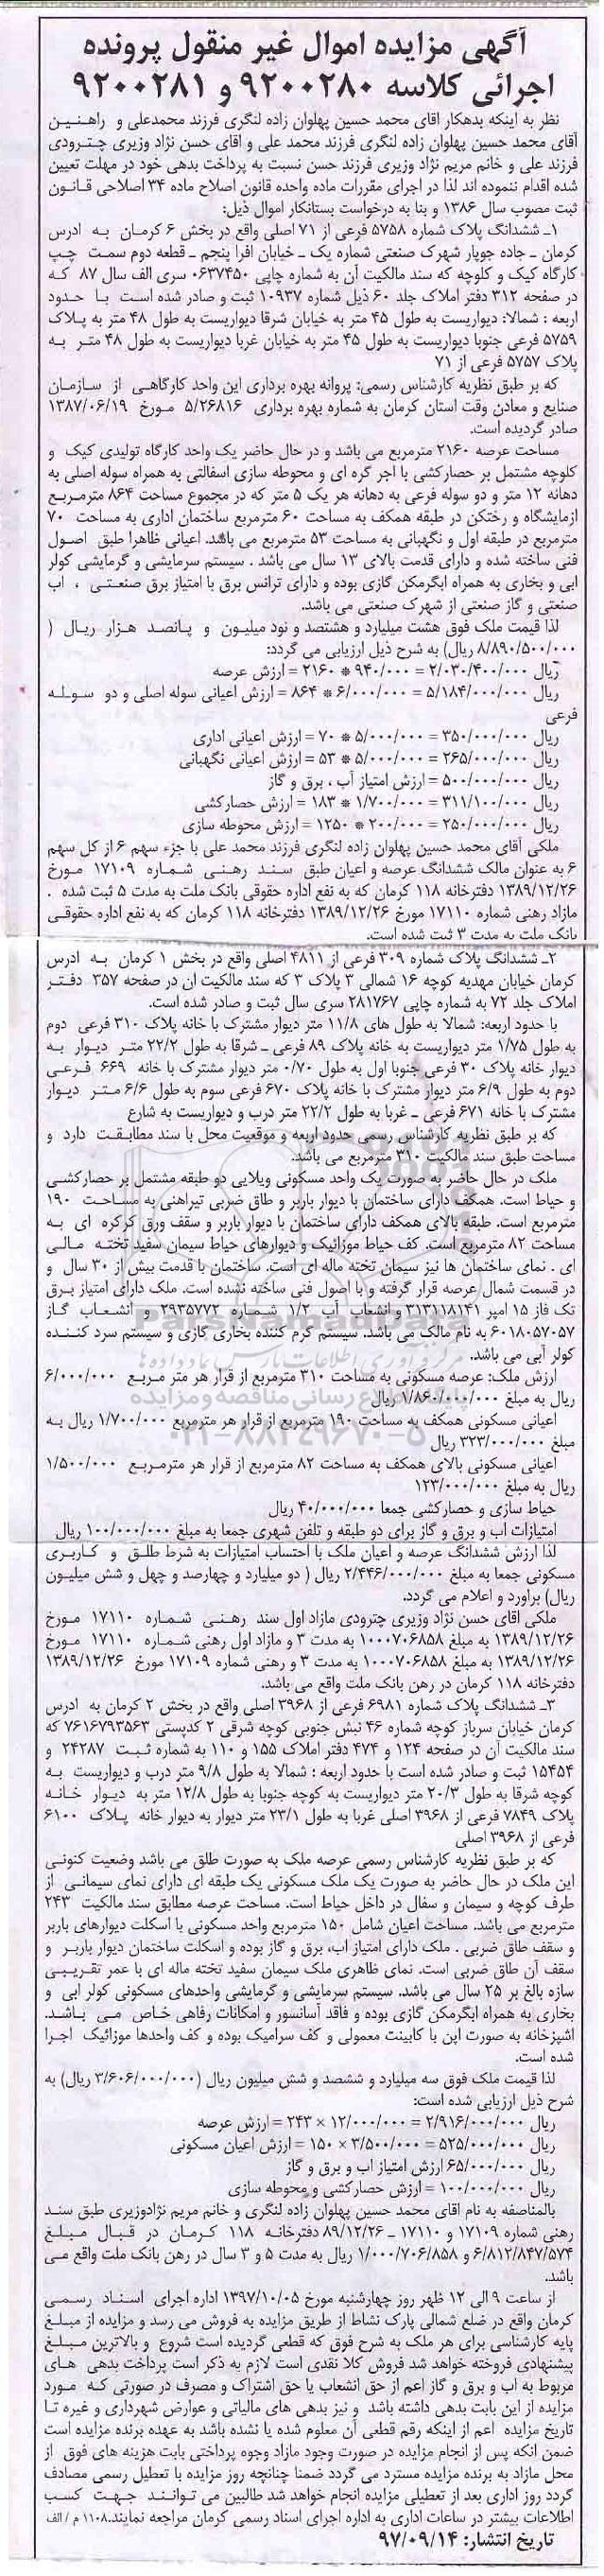 آگهی مزایده اموال غیر منقول پرونده
اجرائی کلاسه ۹۲۰۰۲۸۰ و ۹۲۰۰۲۸۱
نظر به اینکه بدهکار اقای محمد حسین پهلوان زاده لنگری فرزند محمدعلی و راهنین
آقای محمد حسین پهلوان زاده لنگری فرزند محمد علی و اقای حسن نژاد وزیری چترودی
فرزند علی و خانم مریم نژاد وزیری فرزند حسن نسبت به پرداخت بدهی خود در مهلت تعیین
شده اقدام ننموده اند لذا در اجرای مقررات ماده واحده قانون اصلاح ماده ۳۴ اصلاحی قانون
ثبت مصوب سال ۱۳۸۶ و بنا به درخواست بستانکار اموال ذیل:
۱ـ ششدانگ پلاک شماره ۵۷۵۸ فرعی از ۷۱ اصلی واقع در بخش ۶ کرمان به ادرس
کرمان ـ جاده جوپار شهرک صنعتی شماره یک ـ خیابان افرا پنجم ـ قطعه دوم سمت چپ
کارگاه کیک و کلوچه که سند مالکیت آن به شماره چاپی ۰۶۳۷۴۵۰ سری الف سال ۸۷ که
در صفحه ۳۱۲ دفتر املاک جلد ۶۰ ذیل شماره ۱۰۹۳۷ ثبت و صادر شده است با حدود
اربعه : شمالا: دیواریست به طول ۴۵ متر به خیابان شرقا دیواریست به طول ۴۸ متر به پلاک
۵۷۵۹ فرعی جنوبا دیواریست به طول ۴۵ متر به خیابان غربا دیواریست به طول ۴۸ متر به
پلاک ۵۷۵۷ فرعی از ۷۱
که بر طبق نظریه کارشناس رسمی: پروانه بهره برداری این واحد کارگاهی از سازمان
صنایع و معادن وقت استان کرمان به شماره بهره برداری ۵/۲۶۸۱۶ مورخ ۱۳۸۷/۰۶/۱۹
صادر گردیده است.
مساحت عرصه ۲۱۶۰ مترمربع می باشد و در حال حاضر یک واحد کارگاه تولیدی کیک و
کلوچه مشتمل بر حصارکشی با اجر گره ای و محوطه سازی اسفالتی به همراه سوله اصلی به
دهانه ۱۲ متر و دو سوله فرعی به دهانه هر یک ۵ متر که در مجموع مساحت ۸۶۴ مترمربع
ازمایشگاه و رختکن در طبقه همکف به مساحت ۶۰ مترمربع ساختمان اداری به مساحت ۷۰
مترمربع در طبقه اول و نگهبانی به مساحت ۵۳ مترمربع می باشد. اعیانی ظاهرا طبق اصول
فنی ساخته شده و دارای قدمت بالای ۱۳ سال می باشد . سیستم سرمایشی و گرمایشی کولر
ابی و بخاری به همراه ابگرمکن گازی بوده و دارای ترانس برق با امتیاز برق صنعتی ، اب
صنعتی و گاز صنعتی از شهرک صنعتی می باشد.
لذا قیمت ملک فوق هشت میلیارد و هشتصد و نود میلیون و پانصد هزار ریال (
۸/۸۹۰/۵۰۰/۰۰۰ ریال) به شرح ذیل ارزیابی می گردد:
ریال ۲/۰۳۰/۴۰۰/۰۰۰ = ۹۴۰/۰۰۰ * ۲۱۶۰ = ارزش عرصه
ریال ۵/۱۸۴/۰۰۰/۰۰۰ = ۶/۰۰۰/۰۰۰ * ۸۶۴ = ارزش اعیانی سوله اصلی و دو سوله
فرعی
ریال ۳۵۰/۰۰۰/۰۰۰ = ۵/۰۰۰/۰۰۰ * ۷۰ = ارزش اعیانی اداری
ریال ۲۶۵/۰۰۰/۰۰۰ = ۵/۰۰۰/۰۰۰ * ۵۳ = ارزش اعیانی نگهبانی
ریال ۵۰۰/۰۰۰/۰۰۰ = ارزش امتیاز آب ، برق و گاز
ریال ۳۱۱/۱۰۰/۰۰۰ = ۱/۷۰۰/۰۰۰ * ۱۸۳ = ارزش حصارکشی
ریال ۲۵۰/۰۰۰/۰۰۰ = ۲۰۰/۰۰۰ * ۱۲۵۰ = ارزش محوطه سازی
ملکی آقای محمد حسین پهلوان زاده لنگری فرزند محمد علی با جزء سهم ۶ از کل سهم
۶ به عنوان مالک ششدانگ عرصه و اعیان طبق سند رهنی شماره ۱۷۱۰۹ مورخ
۱۳۸۹/۱۲/۲۶ دفترخانه ۱۱۸ کرمان که به نفع اداره حقوقی بانک ملت به مدت ۵ ثبت شده .
مازاد رهنی شماره ۱۷۱۱۰ مورخ ۱۳۸۹/۱۲/۲۶ دفترخانه ۱۱۸ کرمان که به نفع اداره حقوقی
بانک ملت به مدت ۳ ثبت شده است.
۲ـ ششدانگ پلاک شماره ۳۰۹ فرعی از ۴۸۱۱ اصلی واقع در بخش ۱ کرمان به ادرس
کرمان خیابان مهدیه کوچه ۱۶ شمالی ۳ پلاک ۳ که سند مالکیت ان در صفحه ۳۵۷ دفتر
املاک جلد ۷۲ به شماره چاپی ۲۸۱۷۶۷ سری سال ثبت و صادر شده است.
با حدود اربعه: شمالا به طول های ۱۱/۸ متر دیوار مشترک با خانه پلاک ۳۱۰ فرعی دوم
به طول ۱/۷۵ متر دیواریست به خانه پلاک ۸۹ فرعی ـ شرقا به طول ۲۲/۲ متر دیوار به
دیوار خانه پلاک ۳۰ فرعی جنوبا اول به طول ۰/۷۰ متر دیوار مشترک با خانه ۶۶۹ فرعی
دوم به طول ۶/۹ متر دیوار مشترک با خانه پلاک ۶۷۰ فرعی سوم به طول ۶/۶ متر دیوار
مشترک با خانه ۶۷۱ فرعی ـ غربا به طول ۲۲/۲ متر درب و دیواریست به شارع
که بر طبق نظریه کارشناس رسمی حدود اربعه و موقعیت محل با سند مطابقت دارد و
مساحت طبق سند مالکیت ۳۱۰ مترمربع می باشد.
ملک در حال حاضر به صورت یک واحد مسکونی ویلایی دو طبقه مشتمل بر حصارکشی
و حیاط است. همکف دارای ساختمان با دیوار باربر و طاق ضربی تیراهنی به مساحت ۱۹۰
مترمربع است. طبقه بالای همکف دارای ساختمان با دیوار باربر و سقف ورق کرکره ای به
مساحت ۸۲ مترمربع است. کف حیاط موزائیک و دیوارهای حیاط سیمان سفید تخته مالی
ای . نمای ساختمان ها نیز سیمان تخته ماله ای است. ساختمان با قدمت بیش از ۳۰ سال و
در قسمت شمال عرصه قرار گرفته و با اصول فنی ساخته نشده است. ملک دارای امتیاز برق
تک فاز ۱۵ امپر ۳۱۳۱۱۸۱۴۱ و انشعاب آب ۱/۲ شماره ۲۹۳۵۷۷۲ و انشعاب گاز
۶۰۱۸۰۵۷۰۵۷ به نام مالک می باشد. سیستم گرم کننده بخاری گازی و سیستم سرد کننده
کولر آبی می باشد.
ارزش ملک: عرصه مسکونی به مساحت ۳۱۰ مترمربع از قرار هر متر مربع ۶/۰۰۰/۰۰۰
ریال به مبلغ ۱/۸۶۰/۰۰۰/۰۰۰ ریال
اعیانی مسکونی همکف به مساحت ۱۹۰ مترمربع از قرار هر مترمربع ۱/۷۰۰/۰۰۰ ریال به
مبلغ ۳۲۳/۰۰۰/۰۰۰ ریال
اعیانی مسکونی بالای همکف به مساحت ۸۲ مترمربع از قرار هر مترمربع ۱/۵۰۰/۰۰۰
ریال به مبلغ ۱۲۳/۰۰۰/۰۰۰
حیاط سازی و حصارکشی جمعا ۴۰/۰۰۰/۰۰۰ ریال
امتیازات اب و برق و گاز برای دو طبقه و تلفن شهری جمعا به مبلغ ۱۰۰/۰۰۰/۰۰۰ ریال
لذا ارزش ششدانگ عرصه و اعیان ملک با احتساب امتیازات به شرط طلق و کاربری
مسکونی جمعا به مبلغ ۲/۴۴۶/۰۰۰/۰۰۰ ریال ( دو میلیارد و چهارصد و چهل و شش میلیون
ریال) براورد و اعلام می گردد.
ملکی اقای حسن نژاد وزیری چترودی مازاد اول سند رهنی شماره ۱۷۱۱۰ مورخ
۱۳۸۹/۱۲/۲۶ به مبلغ ۱۰۰۰۷۰۶۸۵۸ به مدت ۳ و مازاد اول رهنی شماره ۱۷۱۱۰ مورخ
۱۳۸۹/۱۲/۲۶ به مبلغ ۱۰۰۰۷۰۶۸۵۸ به مدت ۳ و رهنی شماره ۱۷۱۰۹ مورخ ۱۳۸۹/۱۲/۲۶
دفترخانه ۱۱۸ کرمان در رهن بانک ملت واقع می باشد.
۳ـ ششدانگ پلاک شماره ۶۹۸۱ فرعی از ۳۹۶۸ اصلی واقع در بخش ۲ کرمان به ادرس
کرمان خیابان سرباز کوچه شماره ۴۶ نبش جنوبی کوچه شرقی ۲ کدپستی ۷۶۱۶۷۹۳۵۶۳ که
سند مالکیت آن در صفحه ۱۲۴ و ۴۷۴ دفتر املاک ۱۵۵ و ۱۱۰ به شماره ثبت ۲۴۲۸۷ و
۱۵۴۵۴ ثبت و صادر شده است با حدود اربعه : شمالا به طول ۹/۸ متر درب و دیواریست به
کوچه شرقا به طول ۲۰/۳ متر دیواریست به کوچه جنوبا به طول ۱۲/۸ متر به دیوار خانه
پلاک ۷۸۴۹ فرعی از ۳۹۶۸ اصلی غربا به طول ۲۳/۱ متر دیوار به دیوار خانه پلاک ۶۱۰۰
فرعی از ۳۹۶۸ اصلی
که بر طبق نظریه کارشناس رسمی عرصه ملک به صورت طلق می باشد وضعیت کنونی
این ملک در حال حاضر به صورت یک ملک مسکونی یک طبقه ای دارای نمای سیمانی از
طرف کوچه و سیمان و سفال در داخل حیاط است. مساحت عرصه مطابق سند مالکیت ۲۴۳
مترمربع می باشد. مساحت اعیان شامل ۱۵۰ مترمربع واحد مسکونی با اسکلت دیوارهای باربر
و سقف طاق ضربی . ملک دارای امتیاز اب، برق و گاز بوده و اسکلت ساختمان دیوار باربر و
سقف آن طاق ضربی است. نمای ظاهری ملک سیمان سفید تخته ماله ای با عمر تقریبی
سازه بالغ بر ۲۵ سال می باشد. سیستم سرمایشی و گرمایشی واحدهای مسکونی کولر ابی و
بخاری به همراه ابگرمکن گازی بوده و فاقد آسانسور و امکانات رفاهی خاص می باشد.
اشپزخانه به صورت اپن با کابینت معمولی و کف سرامیک بوده و کف واحدها موزائیک اجرا
شده است.
لذا قیمت ملک فوق سه میلیارد و ششصد و شش میلیون ریال (۳/۶۰۶/۰۰۰/۰۰۰ ریال) به
شرح ذیل ارزیابی شده است:
ریال ۲/۹۱۶/۰۰۰/۰۰۰ = ۱۲/۰۰۰/۰۰۰ × ۲۴۳ = ارزش عرصه
ریال ۵۲۵/۰۰۰/۰۰۰ = ۳/۵۰۰/۰۰۰ × ۱۵۰ = ارزش اعیان مسکونی
ریال ۶۵/۰۰۰/۰۰۰ ارزش امتیاز اب و برق و گاز
ریال ۱۰۰/۰۰۰/۰۰۰ = ارزش حصارکشی و محوطه سازی
بالمناصفه به نام اقای محمد حسین پهلوان زاده لنگری و خانم مریم نژادوزیری طبق سند
رهنی شماره ۱۷۱۰۹ و ۱۷۱۱۰ ـ ۸۹/۱۲/۲۶ دفترخانه ۱۱۸ کرمان در قبال مبلغ
۶/۸۱۲/۸۴۷/۵۷۴ و ۱/۰۰۰/۷۰۶/۸۵۸ ریال به مدت ۵ و ۳ سال در رهن بانک ملت واقع می
باشد.
از ساعت ۹ الی ۱۲ ظهر روز چهارشنبه مورخ ۱۳۹۷/۱۰/۰۵ اداره اجرای اسناد رسمی
کرمان واقع در ضلع شمالی پارک نشاط از طریق مزایده به فروش می رسد و مزایده از مبلغ
پایه کارشناسی برای هر ملک به شرح فوق که قطعی گردیده است شروع و بالاترین مبلغ
پیشنهادی فروخته خواهد شد فروش کلا نقدی است لازم به ذکر است پرداخت بدهی های
مربوط به اب و برق و گاز اعم از حق انشعاب یا حق اشتراک و مصرف در صورتی که مورد
مزایده از این بابت بدهی داشته باشد و نیز بدهی های مالیاتی و عوارض شهرداری و غیره تا
تاریخ مزایده اعم از اینکه رقم قطعی آن معلوم شده یا نشده باشد به عهده برنده مزایده است
ضمن انکه پس از انجام مزایده در صورت وجود مازاد وجوه پرداختی بابت هزینه های فوق از
محل مازاد به برنده مزایده مسترد می گردد ضمنا چنانچه روز مزایده با تعطیل رسمی مصادف
گردد روز اداری بعد از تعطیلی مزایده انجام خواهد شد طالبین می توانند جهت کسب
اطلاعات بیشتر در ساعات اداری به اداره اجرای اسناد رسمی کرمان مراجعه نمایند.۱۱۰۸ م / الف
تاریخ انتشار: ۹۷/۰۹/۱۴